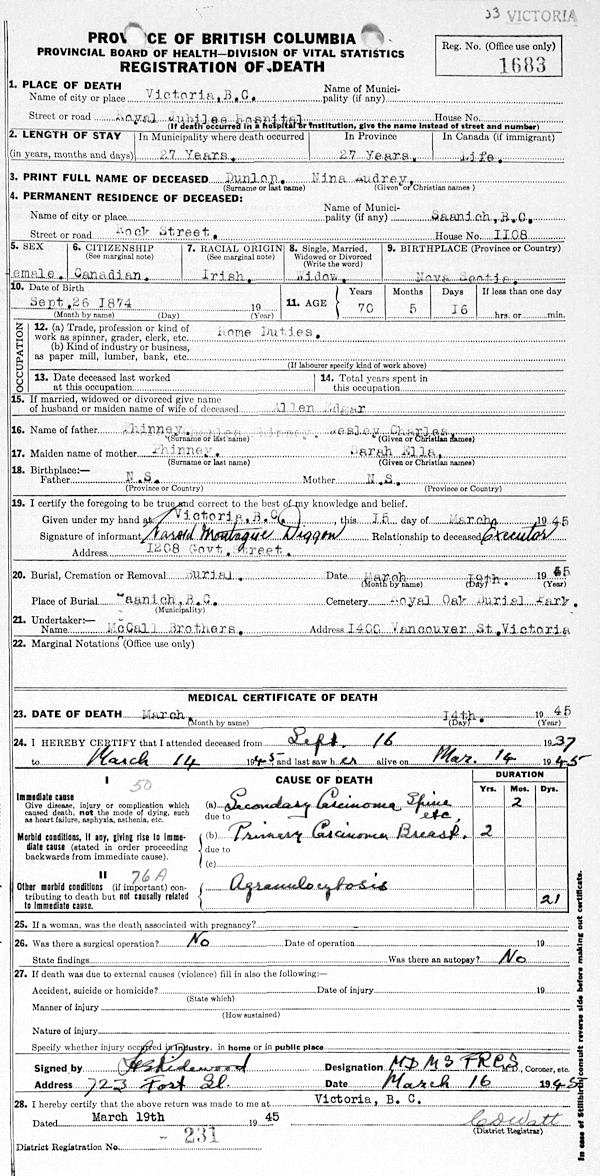 33 VICTORIA
PROVINCE OF BRITISH COLUMBIA
PROVINCIAL BOARD OF HEALTH—DIVISION OF VITAL STATISTICS
REGISTRATION OF DEATH
Reg. No. (Office use only)
1683
1. PLACE OF DEATH
Name of city or place Victoria, B.C. Name of Municipality (if any)
Street or road Royal Jubilee Hospital. House No.
(If death occurred in a hospital or institution, give the name instead of street and number)
2. LENGTH OF STAY In Municipality where death occurred In Province In Canada (if immigrant)
(in years, months and days) 27 Years. 27 Years. Life.
3. PRINT FULL NAME OF DECEASED Dunlop. Nina Audrey.
(Surname or last name) (Given or Christian names)
4. PERMANENT RESIDENCE OF DECEASED:
Name of city or place Name of Municipality (if any) Saanich, B.C.
Street or road Rock Street. House No. 1108
5. SEX 6. CITIZENSHIP 7. RACIAL ORIGIN 8. Single, Married, Widowed or Divorced 9. BIRTHPLACE (Province or Country)
(See marginal note) (See marginal note) (Write the word)
Female. Canadian. Irish. Widow. Nova Scotia.
10. Date of Birth
Sept. 26 1874 19
(Month by name) (Day) (Year)
11. AGE Years Months Days If less than one day
70 5 16 hrs. or min.
OCCUPATION
12. (a) Trade, profession or kind of work as spinner, grader, clerk, etc. Home Duties.
(b) Kind of industry or business, as paper mill, lumber, bank, etc.
(If labourer specify kind of work above)
13. Date deceased last worked at this occupation
14. Total years spent in this occupation
15. If married, widowed or divorced give name of husband or maiden name of wife of deceased Allen Edgar
16. Name of father Phinney. Wesley Charles.
(Surname or last name) (Given or Christian names)
17. Maiden name of mother Phinney. Sarah Ella.
(Surname or last name) (Given or Christian names)
18. Birthplace:—
Father N.S. Mother N.S.
(Province or Country) (Province or Country)
19. I certify the foregoing to be true and correct to the best of my knowledge and belief.
Given under my hand at Victoria, B.C. , this 15 day of March 1945
Signature of informant Harold Montague Diggon Relationship to deceased Executor
Address 1208 Govt. Street.
20. Burial, Cremation or Removal Burial. Date March 19th. 1945
(Month by name) (Day) (Year)
Place of Burial Saanich, B.C. Cemetery Royal Oak Burial Park.
(Municipality)
21. Undertaker:—
Name McCall Brothers. Address 1400 Vancouver St. Victoria
22. Marginal Notations (Office use only)
MEDICAL CERTIFICATE OF DEATH
23. DATE OF DEATH March. 14th. 1945
(Month by name) (Day) (Year)
24. I HEREBY CERTIFY that I attended deceased from Sept. 16 1937
to March 14 1945 and last saw her alive on Mar. 14 1945
I 50 CAUSE OF DEATH DURATION
Yrs. Mos. Dys.
Immediate cause
Give disease, injury or complication which caused death, not the mode of dying, such as heart failure, asphyxia, asthenia, etc.
(a) Secondary Carcinoma Spine etc. 2
due to
Morbid conditions, if any, giving rise to immediate cause (stated in order proceeding backwards from immediate cause).
(b) Primary Carcinoma Breast. 2
due to
(c)
II 76A
Other morbid conditions (if important) contributing to death but not causally related to immediate cause.
Agranulocytosis 21
25. If a woman, was the death associated with pregnancy?
26. Was there a surgical operation? No Date of operation 19
State findings Was there an autopsy? No
27. If death was due to external causes (violence) fill in also the following:—
Accident, suicide or homicide? Date of injury 19
(State which)
Manner of injury
(How sustained)
Nature of injury
Specify whether injury occurred in industry, in home or in public place
Signed by Designation MD MS FRCS M.D., Coroner, etc.
Address 723 Fort St. Date March 16 1945
28. I hereby certify that the above return was made to me at Victoria, B. C.
Dated March 19th 1945
(District Registrar)
District Registration No. - 231
In case of Stillbirth consult reverse side before making out certificate.